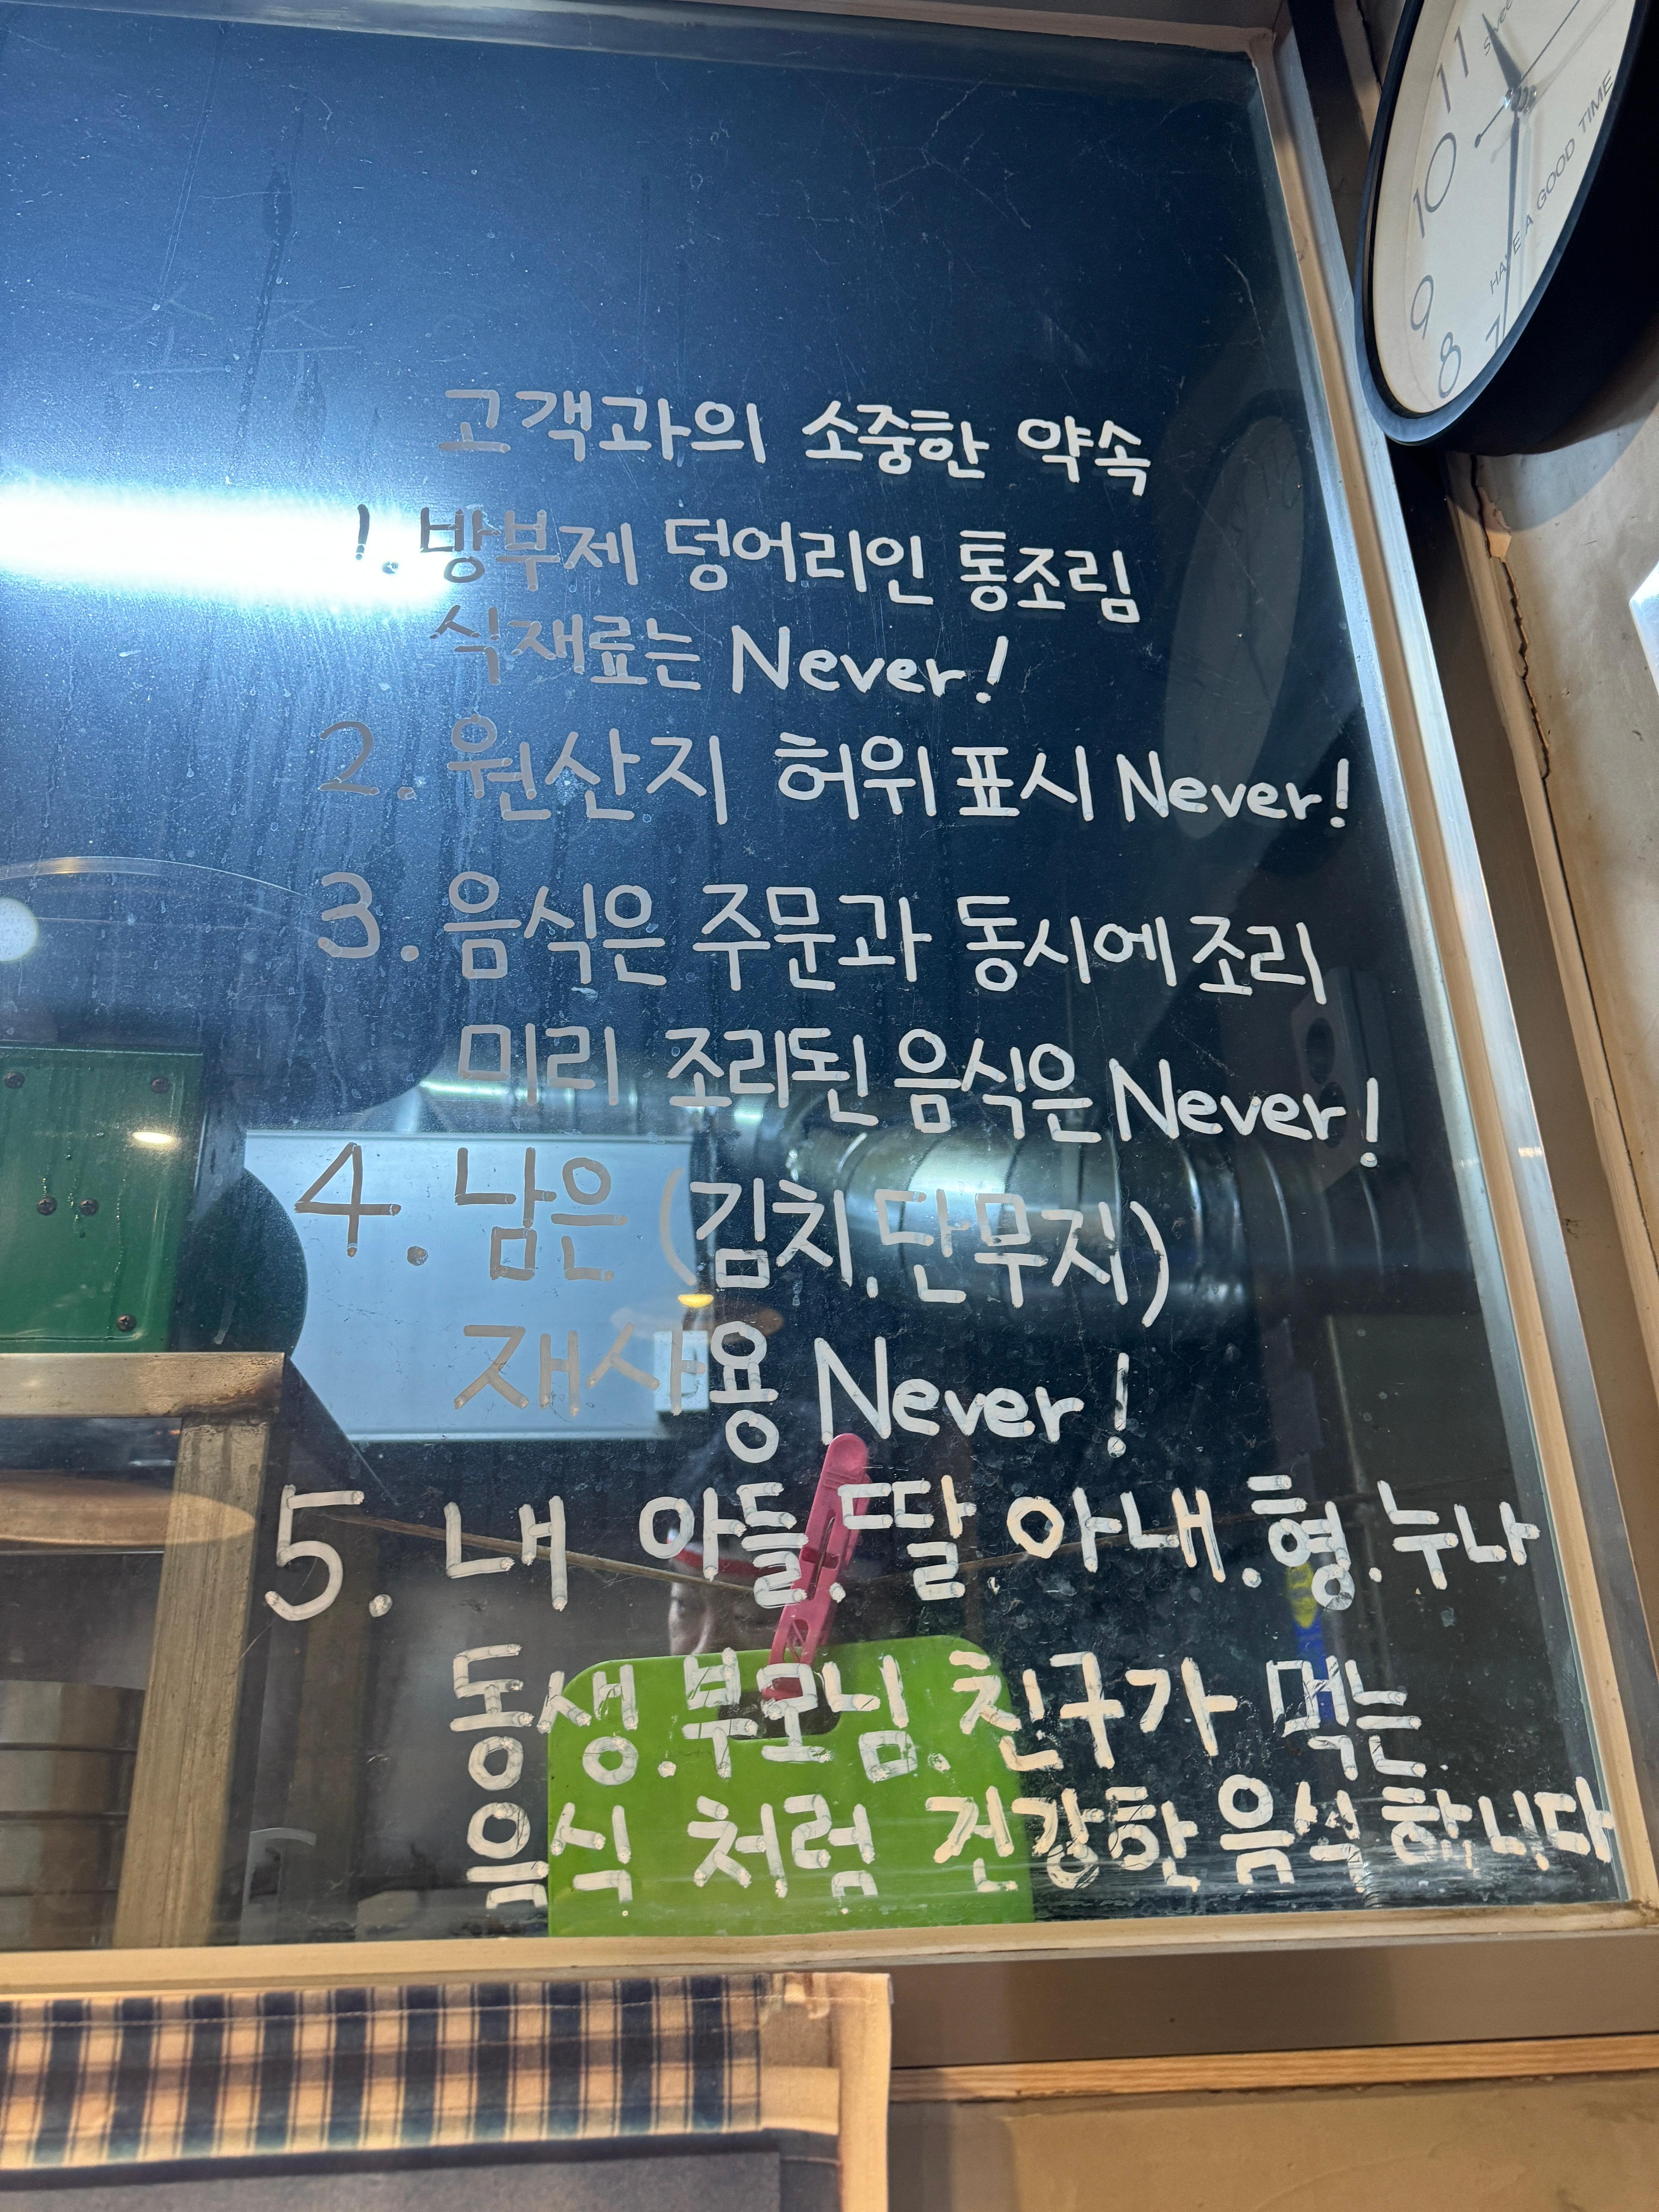 고객과의 소중한 약속
1. 방부제 덩어리인 통조림
식재료는 Never!
2. 원산지 허위표시 Never!
3. 음식은 주문과 동시에 조리
미리 조리된 음식은 Never!
4. 남은 (김치.단무지)
재사용 Never!
5. 내 아들.딸.아내.형.누나
동생.부모님.친구가 먹는
음식 처럼 건강한음식합니다
11
10
9
8
7
HAVE A GOOD TIME